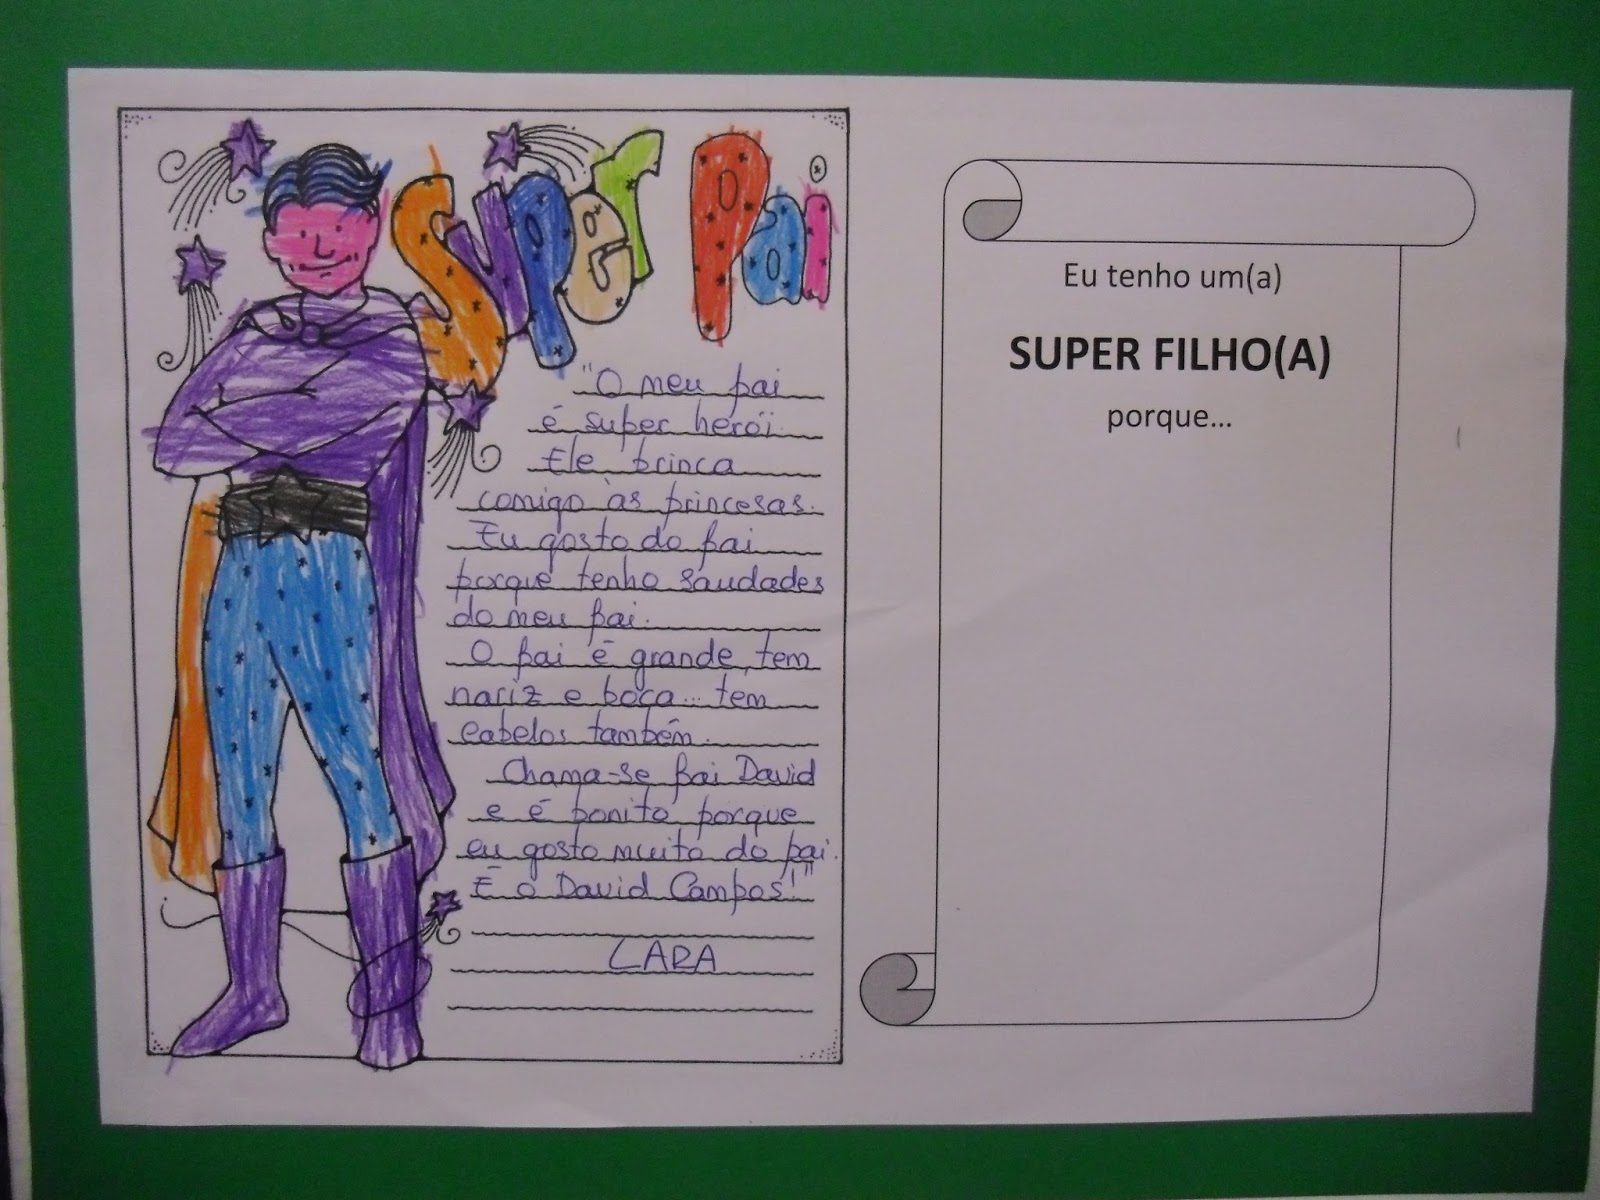 Super Pai
"O meu pai
é super herói.
Ele brinca
comigo às princesas.
Eu gosto do pai
porque tenho saudades
do meu pai.
O pai é grande, tem
nariz e boca... tem
cabelos também.
Chama-se pai David
e é bonito porque
eu gosto muito do pai.
É o David Campos!"
LARA
Eu tenho um(a)
SUPER FILHO(A)
porque...